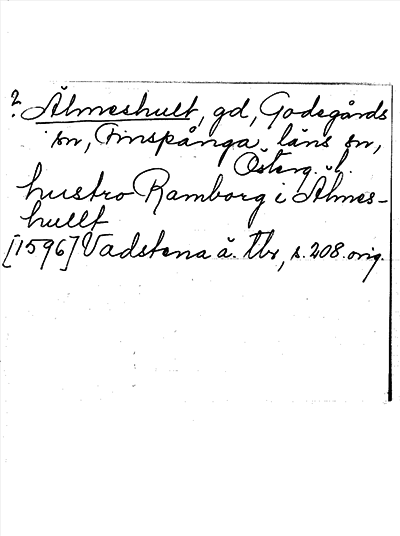 ? Älmeshult, gd, Godegårds
sn, Finspånga läns sn,
Österg. l.
hustro Ramborg i Älmes-
hullt
[1596] Vadstena ä. tbr, s. 208. orig.